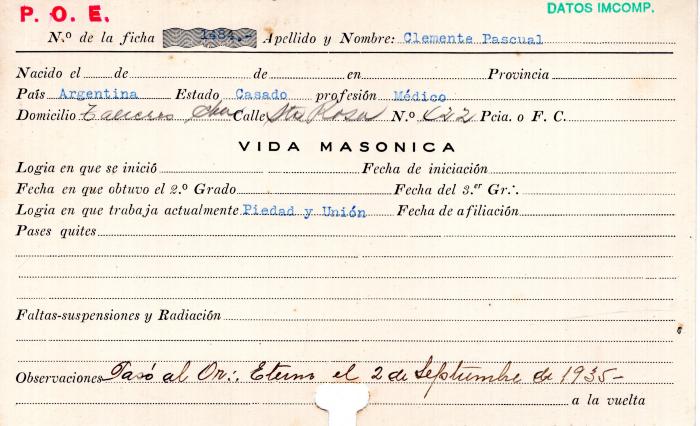 P. O. E.
DATOS IMCOMP.
N.º de la ficha 1484.- Apellido y Nombre: Clemente Pascual
Nacido el de de en Provincia
País Argentina Estado Casado profesión Médico
Domicilio Calle Sta Rosa N.º 422 Pcia. o F. C.
VIDA MASONICA
Logia en que se inició Fecha de iniciación
Fecha en que obtuvo el 2.º Grado Fecha del 3.er Gr∴
Logia en que trabaja actualmente Piedad y Unión Fecha de afiliación
Pases quites
Faltas-suspensiones y Radiación
Observaciones Pasó al Or∴ Eterno el 2 de Septiembre de 1935-
a la vuelta